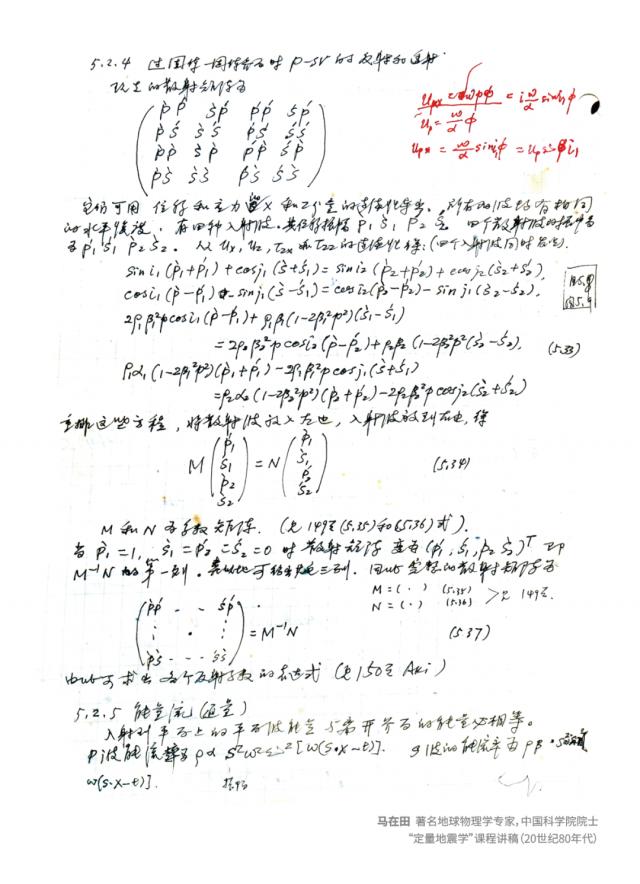 5.2.4 过固体-固体界面时 P-SV 的反射和透射
改之的散射矩阵为
(P̀Ṕ S̀Ṕ ṔṔ ŚṔ
P̀Ś S̀Ś ṔŚ ŚŚ
P̀P̀ S̀P̀ ṔP̀ ŚP̀
P̀S̀ S̀S̀ ṔS̀ ŚS̀)
u_px = iωpφ = i ω/α sin i₁ φ
u_p = ω/α φ
u_px = ω/α sin i₁ φ = u_p sin i₁
它仍可用位移和应力
的水平慢度。有四种入射波。其位移振幅 P̀₁ S̀₁ Ṕ₂ Ś₂ 四个散射波的振幅为
Ṕ₁ Ś₁ P̀₂ S̀₂。从 Ux, Uz, τzx 和 τzz 的连续性得:(四个入射波同时存在).
sin i₁(P̀₁+Ṕ₁) + cos j₁(S̀₁+Ś₁) = sin i₂(P̀₂+Ṕ₂) + cos j₂(S̀₂+Ś₂).
cos i₁(P̀₁-Ṕ₁) - sin j₁(S̀₁-Ś₁) = cos i₂(P̀₂-Ṕ₂) - sin j₂(S̀₂-Ś₂).
2ρ₁β₁²p cos i₁(P̀₁-Ṕ₁) + ρ₁β₁(1-2β₁²p²)(S̀₁-Ś₁)
= 2ρ₂β₂²p cos i₂(P̀₂-Ṕ₂) + ρ₂β₂(1-2β₂²p²)(S̀₂-Ś₂). (5.33)
ρ₁α₁(1-2β₁²p²)(P̀₁+Ṕ₁) - 2ρ₁β₁²p cos j₁(S̀₁+Ś₁)
= ρ₂α₂(1-2β₂²p²)(P̀₂+Ṕ₂) - 2ρ₂β₂²p cos j₂(S̀₂+Ś₂)
重排这些方程,将散射波放入左边,入射波放到右边,得
M (Ṕ₁ Ś₁ P̀₂ S̀₂) = N (P̀₁ S̀₁ Ṕ₂ Ś₂) (5.34)
M 和 N 为系数矩阵. (见149页(5.35)和(5.36)式).
当 P̀₁=1, S̀₁=Ṕ₂=Ś₂=0 时 散射矩阵 变为 (Ṕ₁, Ś₁, P̀₂ S̀₂)ᵀ 即
M⁻¹N 的第一列. 类似地可 三列. 因此完整的散射矩阵为
M=(·) (5.35)
N=(·) (5.36) > 见149页.
(P̀Ṕ · · ŚṔ
⋮ · ⋮
P̀S̀ · · · ŚS̀) = M⁻¹N (5.37)
由此可求出各个反射系数的表达式 (见150页 Aki)
5.2.5 能量流(通量)
入射到平面上的平面波能量与离开界面的能量必相等。
P波能流率为 ρα S²ω² [ω(S·X-t)]. S波的能流率为 ρβ
ω(S·X-t)].
马在田 著名地球物理学专家,中国科学院院士
“定量地震学”课程讲稿(20世纪80年代)